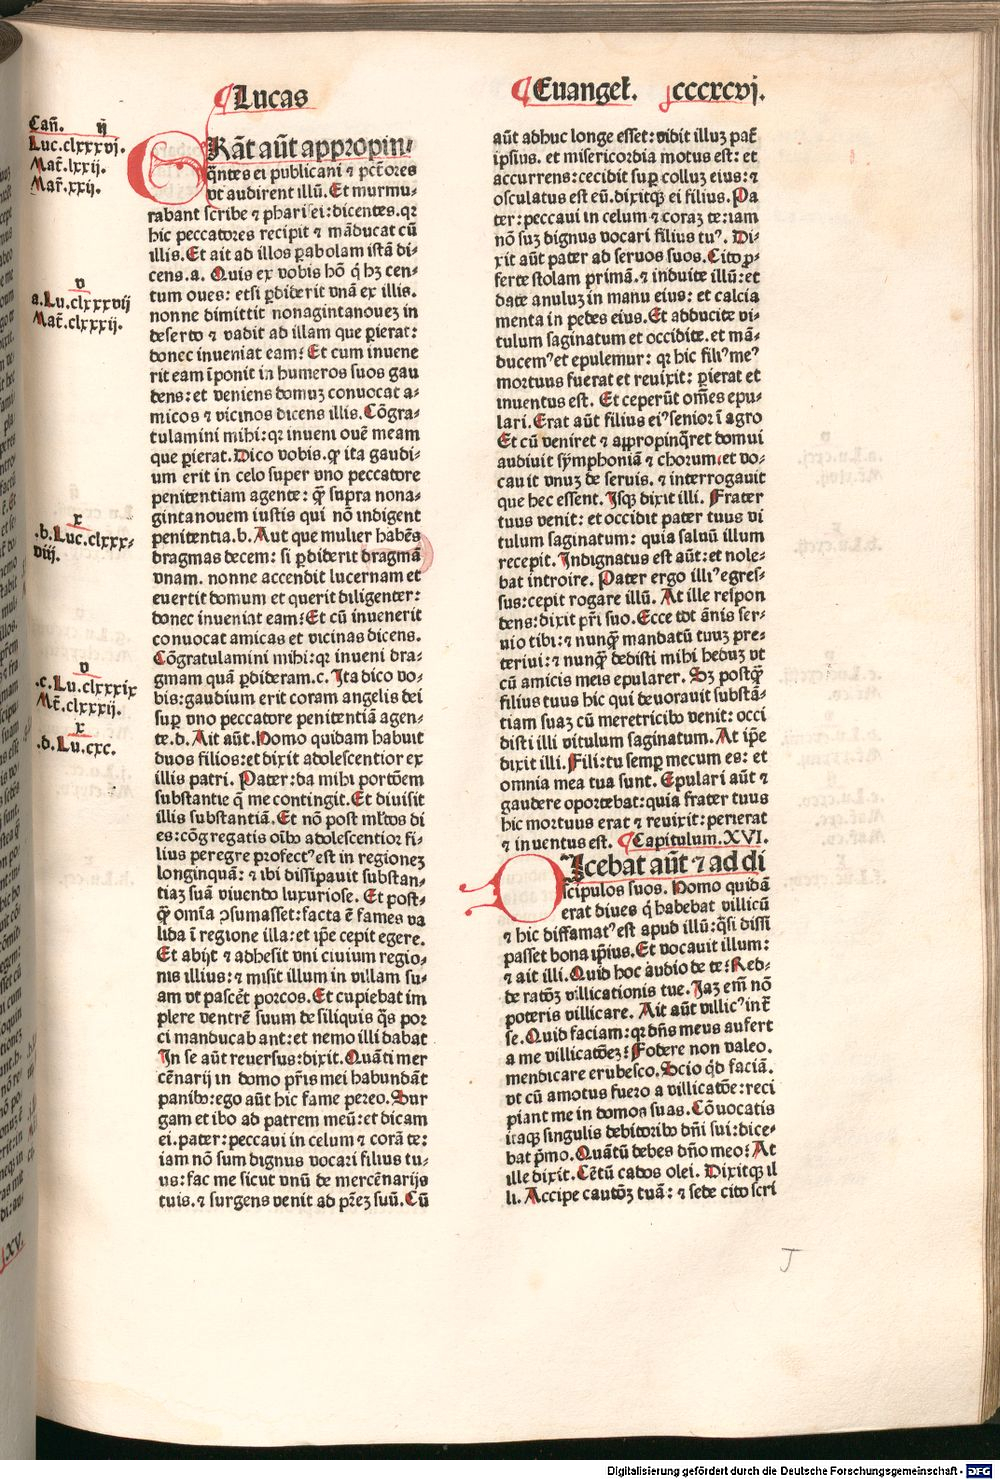 Lucas
Euangeł. cccxcvj.
Cañ. ij
Luc.clxxxvj.
Mat̃.lxxij.
Mar̃.xxij.
v
a.Lu.clxxxvij
Mat̃.clxxxij.
x
.b.Luc.clxxx-
viij.
v
.c.Lu.clxxxix
Mt̃.clxxxij.
x
.d.Lu.cxc.
ERãt aũt appropin-
q̃ntes ei publicani ⁊ pctõres
vt audirent illũ. Et murmu-
rabant scribe ⁊ pharisei: dicentes. qꝛ
hic peccatores recipit ⁊ mãducat cũ
illis. Et ait ad illos ꝑabolam istã di-
cens. a. Quis ex vobis hõ q̇ hꝫ cen-
tum oues: etsi ꝑdiderit vnã ex illis.
nonne dimittit nonagintanouez in
deserto ⁊ vadit ad illam que ꝑierat:
donec inueniat eam? Et cum inuene
rit eam ĩponit in humeros suos gau
dens: et veniens domuz conuocat a-
micos ⁊ vicinos dicens illis. Cõgra-
tulamini mihi: qꝛ inueni ouẽ meam
que ꝑierat. Dico vobis. ꝙ ita gaudi-
um erit in celo super vno peccatore
penitentiam agente: q̃ꝫ supra nona-
gintanouem iustis qui nõ indigent
penitentia. b. Aut que mulier habẽs
dragmas decem: si ꝑdiderit dragmã
vnam. nonne accendit lucernam et
euertit domum et querit diligenter:
donec inueniat eam? Et cũ inuenerit
conuocat amicas et vicinas dicens.
Cõgratulamini mihi: qꝛ inueni dra-
gmam quã ꝑdideram. c. Ita dico vo-
bis: gaudium erit coram angelis dei
suꝑ vno peccatore penitentiã agen-
te. d. Ait aũt. Homo quidam habuit
duos filios: et dixit adolescentior ex
illis patri. Pater: da mihi portõem
substantie q̃ me contingit. Et diuisit
illis substantiã. Et nõ post ml̃tos di
es: cõgregatis oĩbꝰ adolescentior fi-
lius peregre profectꝰ est in regionez
longinquã: ⁊ ibi dissipauit substan-
tiaz suã viuendo luxuriose. Et post-
q̃ꝫ om̃ia ꝯsumasset: facta ẽ fames va
lida ĩ regione illa: et ip̃e cepit egere.
Et abijt ⁊ adhesit vni ciuium regio-
nis illius: ⁊ misit illum in villam su-
am vt pascẽt porcos. Et cupiebat im
plere ventrẽ suum de siliquis q̃s por
ci manducabant: et nemo illi dabat
In se aũt reuersus: dixit. Quãti mer
cẽnarij in domo pr̃is mei habundãt
panibꝰ: ego aũt hic fame pereo. Sur
gam et ibo ad patrem meũ: et dicam
ei. pater: peccaui in celum ⁊ corã te:
iam nõ sum dignus vocari filius tu-
us: fac me sicut vnũ de mercẽnarijs
tuis. ⁊ surgens venit ad pr̃eꝫ suũ. Cũ
aũt adhuc longe esset: vidit illuz pat̃
ipsius. et misericordia motus est: et
accurrens: cecidit suꝑ colluz eius: ⁊
osculatus est eũ. dixitqꝫ ei filius. Pa
ter: peccaui in celum ⁊ coraz te: iam
nõ suz dignus vocari filius tuꝰ. Di-
xit aũt pater ad seruos suos. Cito ꝓ-
ferte stolam primã. ⁊ induite illũ: et
date anuluz in manu eius: et calcia
menta in pedes eius. Et adducite vi-
tulum saginatum et occidite. et mã-
ducemꝰ et epulemur: qꝛ hic filiꝰ meꝰ
mortuus fuerat et reuixit: ꝑierat et
inuentus est. Et ceperũt om̃es epu-
lari. Erat aũt filius eiꝰ senior ĩ agro
Et cũ veniret ⁊ appropinq̃ret domui
audiuit symphoniã ⁊ chorum: et vo-
cauit vnuz de seruis. ⁊ interrogauit
que hec essent. Isqꝫ dixit illi. Frater
tuus venit: et occidit pater tuus vi
tulum saginatum: quia saluũ illum
recepit. Indignatus est aũt: et nole-
bat introire. Pater ergo illiꝰ egres-
sus: cepit rogare illũ. At ille respon
dens: dixit pr̃i suo. Ecce tot ãnis ser-
uio tibi: ⁊ nunq̃ꝫ mandatũ tuuz pre-
teriui: ⁊ nunq̃ꝫ dedisti mihi heduz vt
cũ amicis meis epularer. Sꝫ postq̃ꝫ
filius tuus hic qui deuorauit substã-
tiam suaz cũ meretricibꝰ venit: occi
disti illi vitulum saginatum. At ip̃e
dixit illi. Fili: tu semꝑ mecum es: et
omnia mea tua sunt. Epulari aũt ⁊
gaudere oportebat: quia frater tuus
hic mortuus erat ⁊ reuixit: perierat
⁊ inuentus est. Capitulum. XVI.
DIcebat aũt ⁊ ad di
scipulos suos. Homo quidã
erat diues q̇ habebat villicũ
⁊ hic diffamatꝰ est apud illũ: q̃si dissi
passet bona ip̃ius. Et vocauit illum:
⁊ ait illi. Quid hoc audio de te? Red-
de ratõꝫ villicationis tue. Jaz em̃ nõ
poteris villicare. Ait aũt villicꝰ int̃
se. Quid faciam: qꝛ dñs meus aufert
a me villicatõez? Fodere non valeo.
mendicare erubesco. Scio qd̃ faciã.
vt cũ amotus fuero a villicatõe: reci
piant me in domos suas. Cõuocatis
itaqꝫ singulis debitoribꝰ dñi sui: dice-
bat p̃mo. Quãtũ debes dño meo? At
ille dixit. Cẽtũ cados olei. Dixitqꝫ il
li. Accipe cautõꝫ tuã: ⁊ sede cito scri
Digitalisierung gefördert durch die Deutsche Forschungsgemeinschaft - DFG